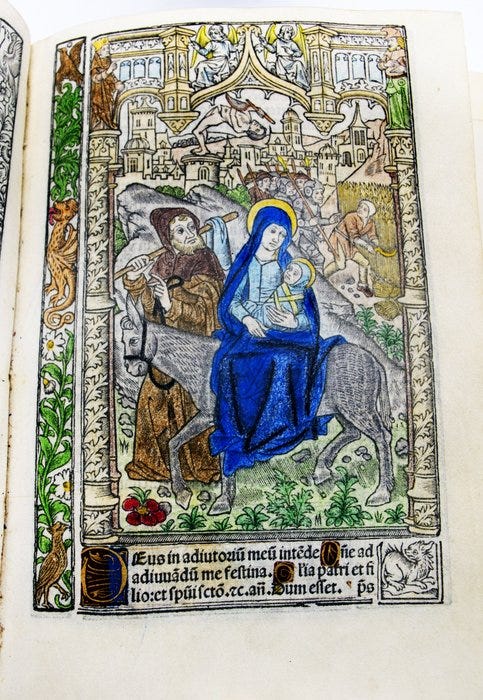 Deus in adiutoriū meū intēde Dn̄e ad
adiuuādū me festina. Gl̄ia patri et fi
lio: et spūi scto. ⁊c. añ. Dum esset. p̄s